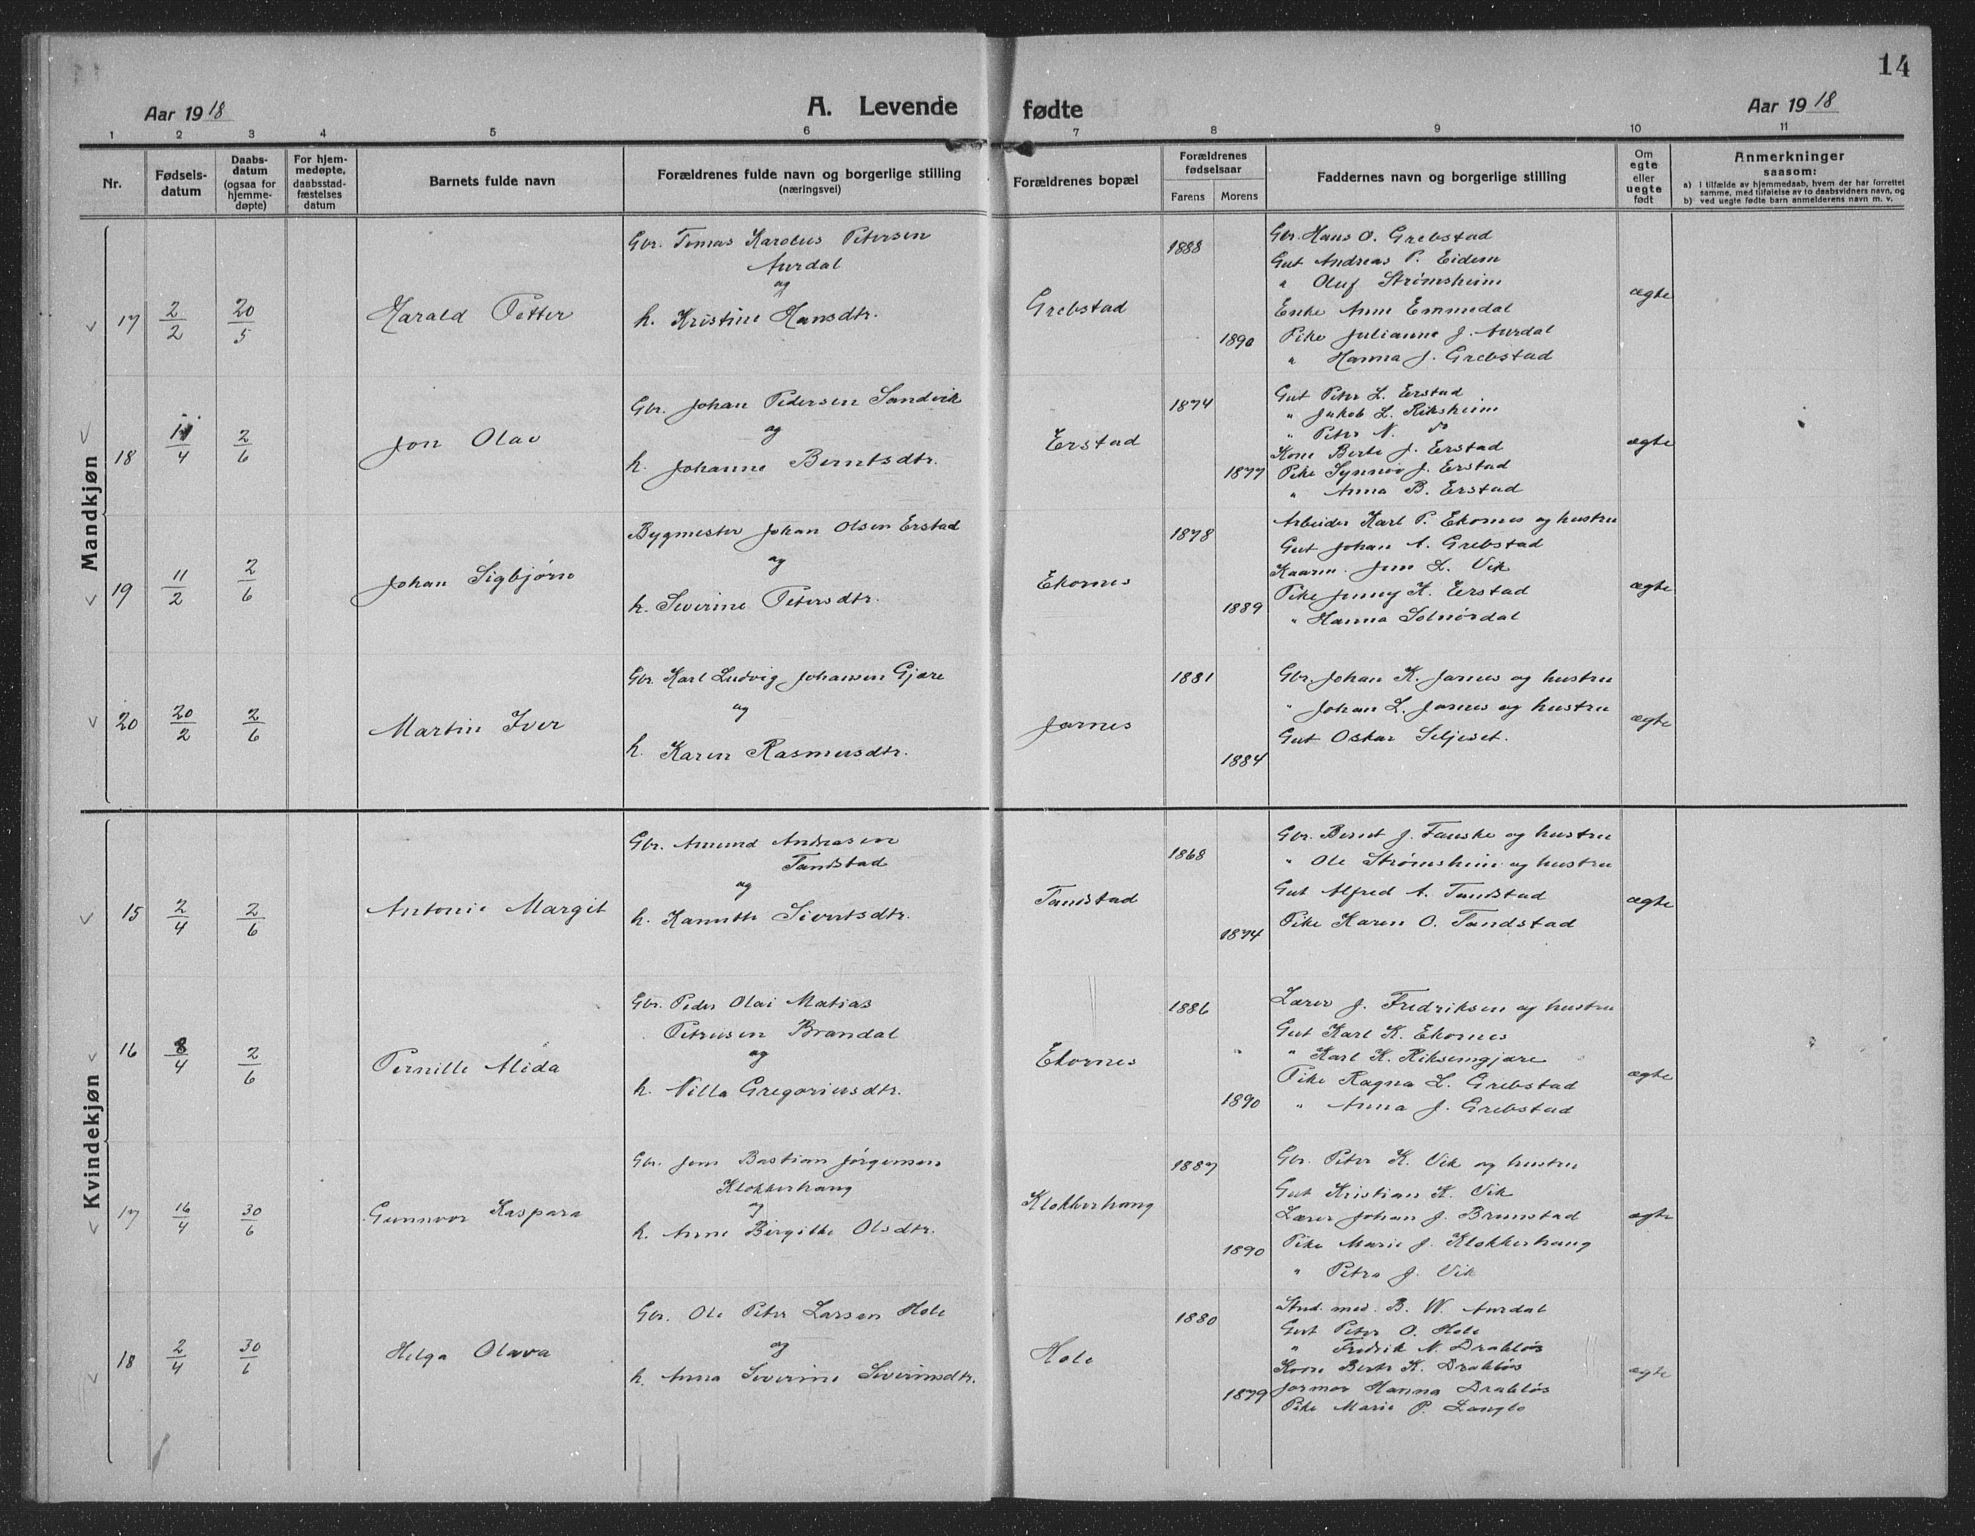 14
Aar 1918
A. Levende fødte
Aar 1918
1 2 3 4 5 6 7 8 9 10 11
Nr.
Fødsels-
datum
Daabs-
datum
(ogsaa for
hjemme-
døpte)
For hjem-
medøpte,
daabsstad-
fæstelses
datum
Barnets fulde navn
Forældrenes fulde navn og borgerlige stilling
(næringsvei)
Forældrenes bopæl
Forældrenes
fødselsaar
Farens Morens
Faddernes navn og borgerlige stilling
Om
egte
eller
uegte
født
Anmerkninger
saasom:
a) I tilfælde av hjemmedaab, hvem der har forrettet
samme, med tilføielse av to daabsvidners navn, og
b) ved uegte fødte barn anmelderens navn m. v.
Mandkjøn
17 2/2 20/5
Harald Petter
Gbr. Tomas Karolus Petersen
Aurdal
og
h. Kristine Hansdtr.
Grebstad
1888
1890
Gbr. Hans O. Grebstad
Gut Andreas P. Eidem
" Oluf Strømsheim
Enke Anne Emmedal
Pike Julianne J. Aurdal
" Hanna J. Grebstad
ægte
18 11/4 2/6
Jon Olav
Gbr. Johan Pedersen Sandvik
og
h. Johanne Berntsdtr.
Erstad
1874
1877
Gut Peter L. Erstad
" Jakob L. Riksheim
" Peter N. do
Kone Berte J. Erstad
Pike Synnøv J. Erstad
" Anna B. Erstad
ægte
19 11/2 2/6
Johan Sigbjørn
Bygmester Johan Olsen Erstad
og
h. Severine Petersdtr.
Ekornes
1878
1889
Arbeider Karl P. Ekornes og hustru
Gut Johan A. Grebstad
Kaarm. Jens L. Vik
Pike Jenny K. Erstad
" Hanna Solnørdal
ægte
20 20/2 2/6
Martin Iver
Gbr. Karl Ludvig Johansen Gjære
og
h. Karen Rasmusdtr.
Jarnes
1881
1884
Gbr. Johan K. Jarnes og hustru
" Johan L. Jarnes og hustru
Gut Oskar Seljeset.
ægte
Kvindekjøn
15 2/4 2/6
Antonie Margit
Gbr. Amund Andreasen
Tandstad
og
h. Kanutte Sivertsdtr.
Tandstad
1868
1874
Gbr. Bernt J. Fauske og hustru
" Ole Strømsheim og hustru
Gut Alfred A. Tandstad
Pike Karen O. Tandstad
ægte
16 8/4 2/6
Pernille Alida
Gbr. Peder Olai Matias
Petersen Brandal
og
h. Nilla Gregoriusdtr.
Ekornes
1886
1890
Lærer J. Fredriksen og hustru
Gut Karl K. Ekornes
" Karl K. Riksemgjære
Pike Ragna L. Grebstad
" Anna J. Grebstad
ægte
17 16/4 30/6
Gunnvor Kaspara
Gbr. Jens Bastian Jørgensen
Klokkerhaug
og
h. Anne Birgitte Olsdtr.
Klokkerhaug
1887
1890
Gbr. Peter K. Vik og hustru
Gut Kristian K. Vik
Lærer Johan J. Brunstad
Pike Marie J. Klokkerhaug
" Petra J. Vik
ægte
18 2/4 30/6
Helga Olava
Gbr. Ole Peter Larsen Hole
og
h. Anna Severine Severinsdtr.
Hole
1880
1879
Stud. med. B. W. Aurdal
Gut Peter O. Hole
" Fredrik N. Drabløs
Kone Berte K. Drabløs
Jormor Hanna Drabløs
Pike Marie P. Langlo
ægte